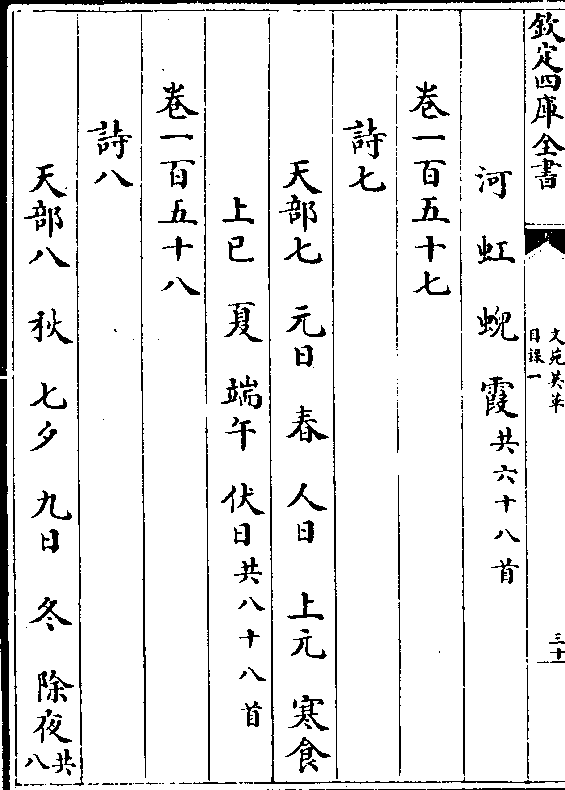 欽定四庫全書
文苑英華
目録一
三十一
河 虹 蜺 霞共六十八首
卷一百五十七
詩七
天部七 元日 春 人日 上元 寒食
上巳 夏 端午 伏日共八十八首
卷一百五十八
詩八
天部八 秋 七夕 九日 冬 除夜共八